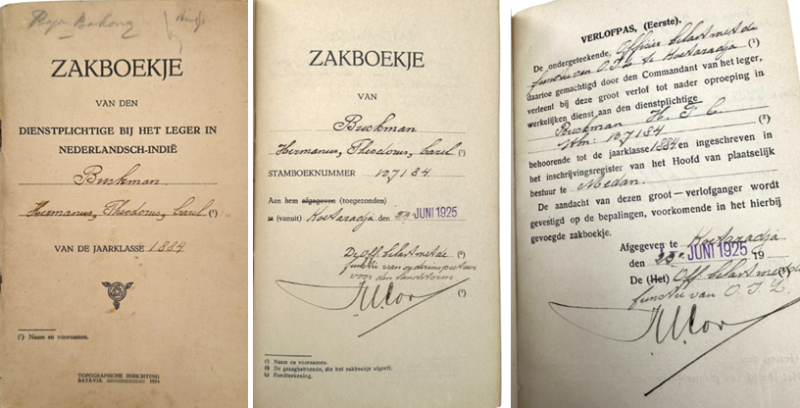 ZAKBOEKJE
VAN DEN
DIENSTPLICHTIGE BIJ HET LEGER IN
NEDERLANDSCH-INDIË
Beekman
Hermanus, Theodorus, Carel (¹)
VAN DE JAARKLASSE 1884
(¹) Naam en voornamen.
TOPOGRAFISCHE INRICHTING
BATAVIA 1924
ZAKBOEKJE
VAN
Beekman
Hermanus, Theodorus, Carel (¹)
STAMBOEKNUMMER 107184
Aan hem afgegeven (toegezonden)
te (vanuit) Koetaradja den 23e JUNI 1925
De Off. belast met de
functie van onderinspecteur
voor den landstorm (²)
(³)
(¹) Naam en voornamen.
(²) De gezaghebbende, die het zakboekje afgeeft.
(³) Handteekening.
VERLOFPAS, (Eerste).
De ondergeteekende, Officier belast met de
functie van O.I.L. te Koetaradja (¹)
daartoe gemachtigd door den Commandant van het leger,
verleent bij deze groot verlof tot nader oproeping in
werkelijken dienst aan den dienstplichtige
Beekman H. T. C.
107184
behoorende tot de jaarklasse 1884 en ingeschreven in
het inschrijvingsregister van het Hoofd van plaatselijk
bestuur te Medan.
De aandacht van dezen groot—verlofganger wordt
gevestigd op de bepalingen, voorkomende in het hierbij
gevoegde zakboekje.
Afgegeven te Koetaradja
den 23e JUNI 1925 19
De (Het) Off. belast met de (¹)
functie van O.I.L.